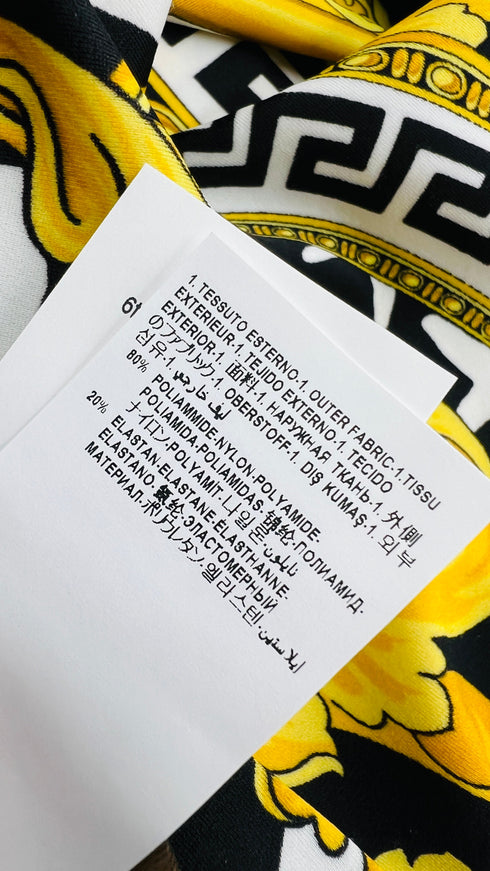 61
1. TESSUTO ESTERNO-1. OUTER FABRIC-1.TISSU
EXTERIEUR.-1. TEJIDO EXTERNO.-1. TECIDO
EXTERIOR.-1. 面料-1. НАРУЖНАЯ ТКАНЬ-1. 外側
のファブリック-1. OBERSTOFF-1. DIŞ KUMAŞ-1. 외부
섬유-1. ليف خارجي
80% POLIAMMIDE-NYLON-POLYAMIDE
POLIAMIDA.POLIAMIDAS. 锦纶-ПОЛИАМИД.
ナイロン.POLYAMIT. 나일론 نايلون.
20% ELASTAN-ELASTANE.ELASTHANNE.
ELASTANO. 氨纶-ЭЛАСТОМЕРНЫЙ
МАТЕРИАЛ.ポリウレタン.엘라스테. ايلاستين